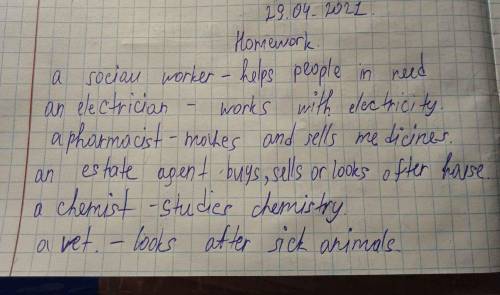 29.04.2021.
Homework.
a sociau worker - helps people in need
an electrician - works with electricity.
a pharmacist - makes and sells medicines.
an estate agent - buys, sells or looks after house
a chemist - studies chemistry.
a vet. - looks after sick animals.